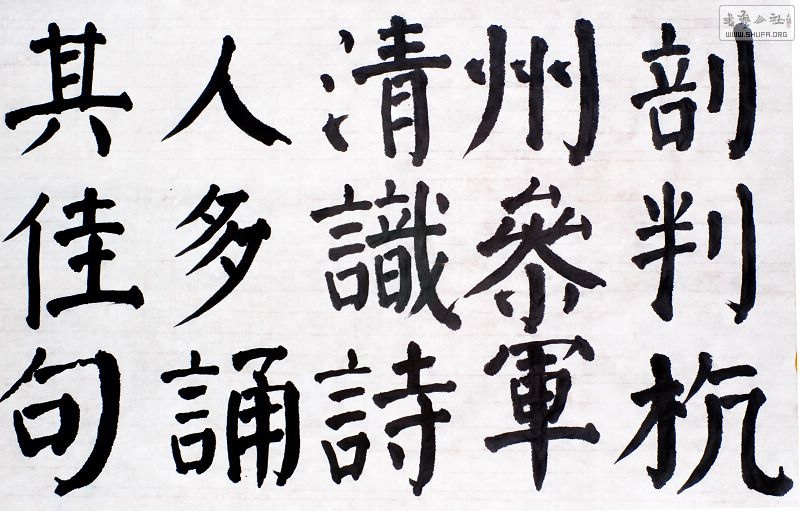 剖判杭
州參軍
清識詩
人多誦
其佳句
書藝公社
WWW.SHUFA.ORG